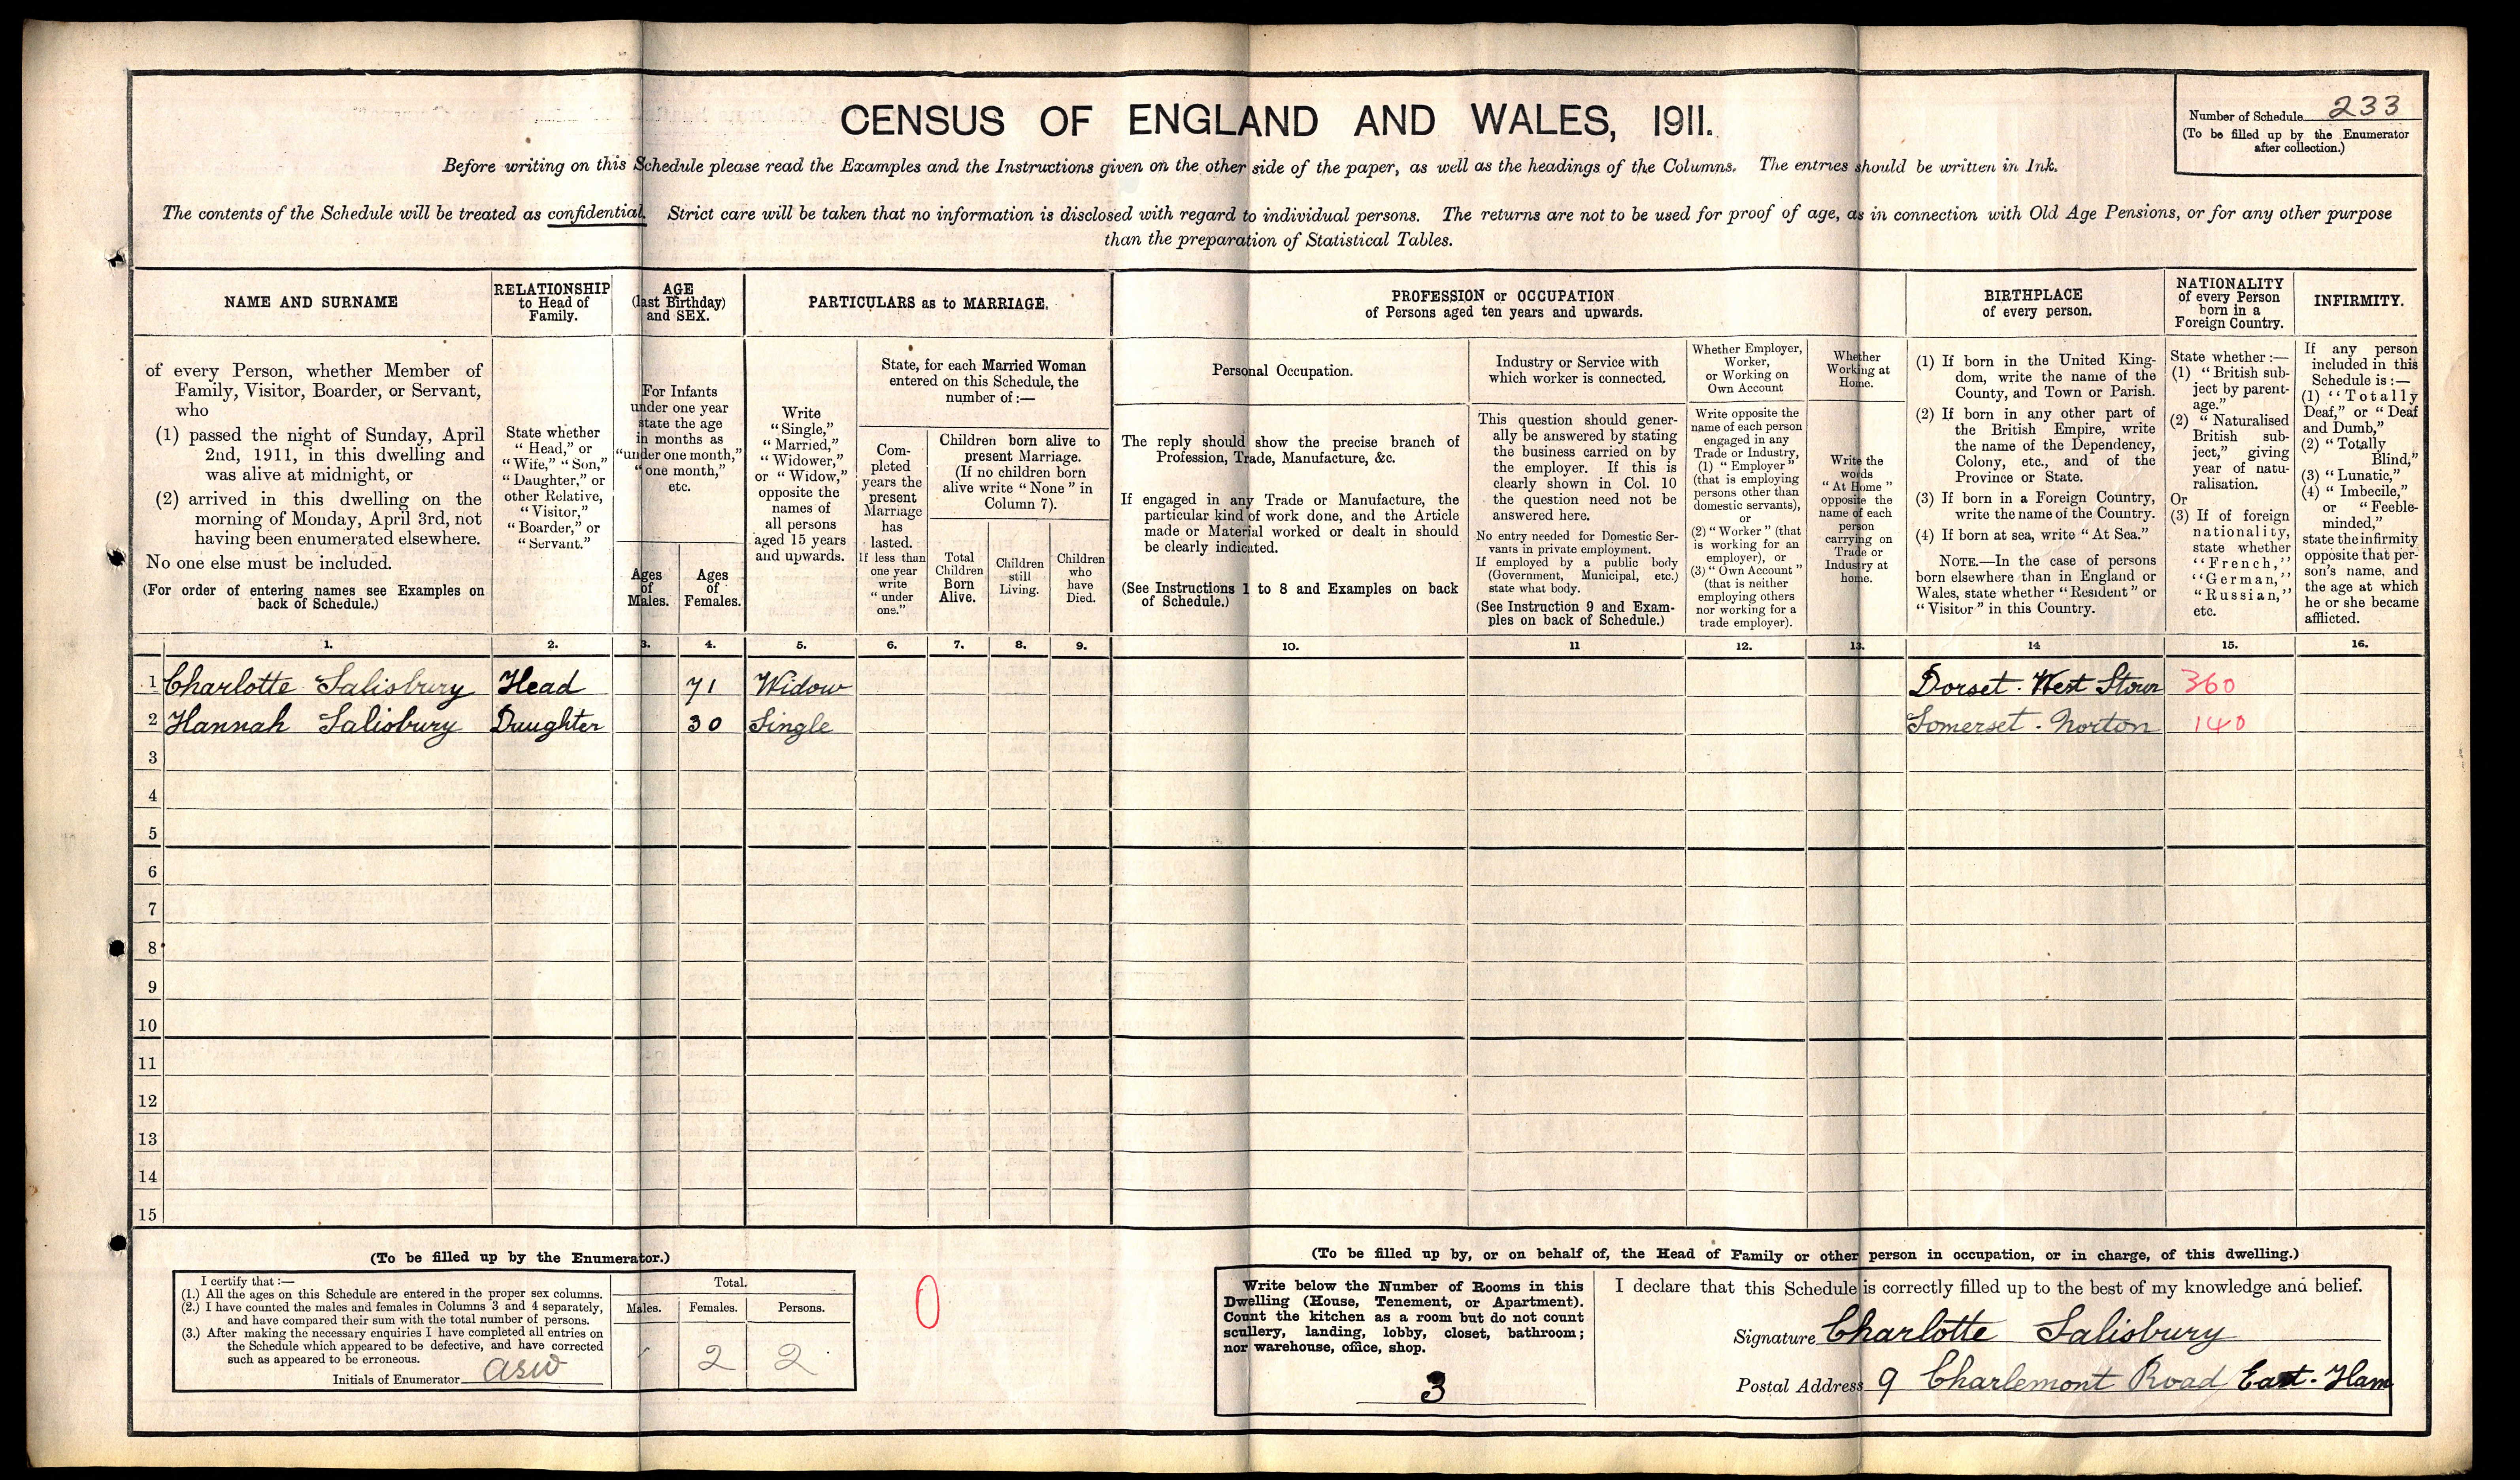 CENSUS OF ENGLAND AND WALES, 1911.
Number of Schedule 233
(To be filled up by the Enumerator
after collection.)
Before writing on this Schedule please read the Examples and the Instructions given on the other side of the paper, as well as the headings of the Columns. The entries should be written in Ink.
The contents of the Schedule will be treated as confidential. Strict care will be taken that no information is disclosed with regard to individual persons. The returns are not to be used for proof of age, as in connection with Old Age Pensions, or for any other purpose
than the preparation of Statistical Tables.
NAME AND SURNAME
of every Person, whether Member of
Family, Visitor, Boarder, or Servant,
who
(1) passed the night of Sunday, April
2nd, 1911, in this dwelling and
was alive at midnight, or
(2) arrived in this dwelling on the
morning of Monday, April 3rd, not
having been enumerated elsewhere.
No one else must be included.
(For order of entering names see Examples on
back of Schedule.)
RELATIONSHIP
to Head of
Family.
State whether
"Head," or
"Wife," "Son,"
"Daughter," or
other Relative,
"Visitor,"
"Boarder," or
"Servant."
AGE
(last Birthday)
and SEX.
For Infants
under one year
state the age
in months as
"under one month,"
"one month,"
etc.
Ages
of
Males.
Ages
of
Females.
PARTICULARS as to MARRIAGE.
Write
"Single,"
"Married,"
"Widower,"
or "Widow,"
opposite the
names of
all persons
aged 15 years
and upwards.
State, for each Married Woman
entered on this Schedule, the
number of :—
Com-
pleted
years the
present
Marriage
has
lasted.
If less than
one year
write
"under
one."
Children born alive to
present Marriage.
(If no children born
alive write "None" in
Column 7).
Total
Children
Born
Alive.
Children
still
Living.
Children
who
have
Died.
PROFESSION or OCCUPATION
of Persons aged ten years and upwards.
Personal Occupation.
The reply should show the precise branch of
Profession, Trade, Manufacture, &c.
If engaged in any Trade or Manufacture, the
particular kind of work done, and the Article
made or Material worked or dealt in should
be clearly indicated.
(See Instructions 1 to 8 and Examples on back
of Schedule.)
Industry or Service with
which worker is connected.
This question should gener-
ally be answered by stating
the business carried on by
the employer. If this is
clearly shown in Col. 10
the question need not be
answered here.
No entry needed for Domestic Ser-
vants in private employment.
If employed by a public body
(Government, Municipal, etc.)
state what body.
(See Instruction 9 and Exam-
ples on back of Schedule.)
Whether Employer,
Worker,
or Working on
Own Account
Write opposite the
name of each person
engaged in any
Trade or Industry,
(1) "Employer"
(that is employing
persons other than
domestic servants),
or
(2) "Worker" (that
is working for an
employer), or
(3) "Own Account"
(that is neither
employing others
nor working for a
trade employer).
Whether
Working at
Home.
Write the
words
"At Home"
opposite the
name of each
person
carrying on
Trade or
Industry at
home.
BIRTHPLACE
of every person.
(1) If born in the United King-
dom, write the name of the
County, and Town or Parish.
(2) If born in any other part of
the British Empire, write
the name of the Dependency,
Colony, etc., and of the
Province or State.
(3) If born in a Foreign Country,
write the name of the Country.
(4) If born at sea, write "At Sea."
NOTE.—In the case of persons
born elsewhere than in England or
Wales, state whether "Resident" or
"Visitor" in this Country.
NATIONALITY
of every Person
born in a
Foreign Country.
State whether :—
(1) "British sub-
ject by parent-
age."
(2) "Naturalised
British sub-
ject," giving
year of natu-
ralisation.
Or
(3) If of foreign
nationality,
state whether
"French,"
"German,"
"Russian,"
etc.
INFIRMITY.
If any person
included in this
Schedule is :—
(1) "Totally
Deaf," or "Deaf
and Dumb,"
(2) "Totally
Blind,"
(3) "Lunatic,"
(4) "Imbecile,"
or "Feeble-
minded,"
state the infirmity
opposite that per-
son's name, and
the age at which
he or she became
afflicted.
1. 2. 3. 4. 5. 6. 7. 8. 9. 10. 11 12. 13. 14 15. 16.
1 Charlotte Salisbury Head 71 Widow Dorset. West Stour 360
2 Hannah Salisbury Daughter 30 Single Somerset. Norton 140
3
4
5
6
7
8
9
10
11
12
13
14
15
(To be filled up by the Enumerator.)
I certify that :—
(1.) All the ages on this Schedule are entered in the proper sex columns.
(2.) I have counted the males and females in Columns 3 and 4 separately,
and have compared their sum with the total number of persons.
(3.) After making the necessary enquiries I have completed all entries on
the Schedule which appeared to be defective, and have corrected
such as appeared to be erroneous.
Initials of Enumerator ASW
Total.
Males. Females. Persons.
2 2
0
(To be filled up by, or on behalf of, the Head of Family or other person in occupation, or in charge, of this dwelling.)
Write below the Number of Rooms in this
Dwelling (House, Tenement, or Apartment).
Count the kitchen as a room but do not count
scullery, landing, lobby, closet, bathroom;
nor warehouse, office, shop.
3
I declare that this Schedule is correctly filled up to the best of my knowledge and belief.
Signature Charlotte Salisbury
Postal Address 9 Charlemont Road East. Ham